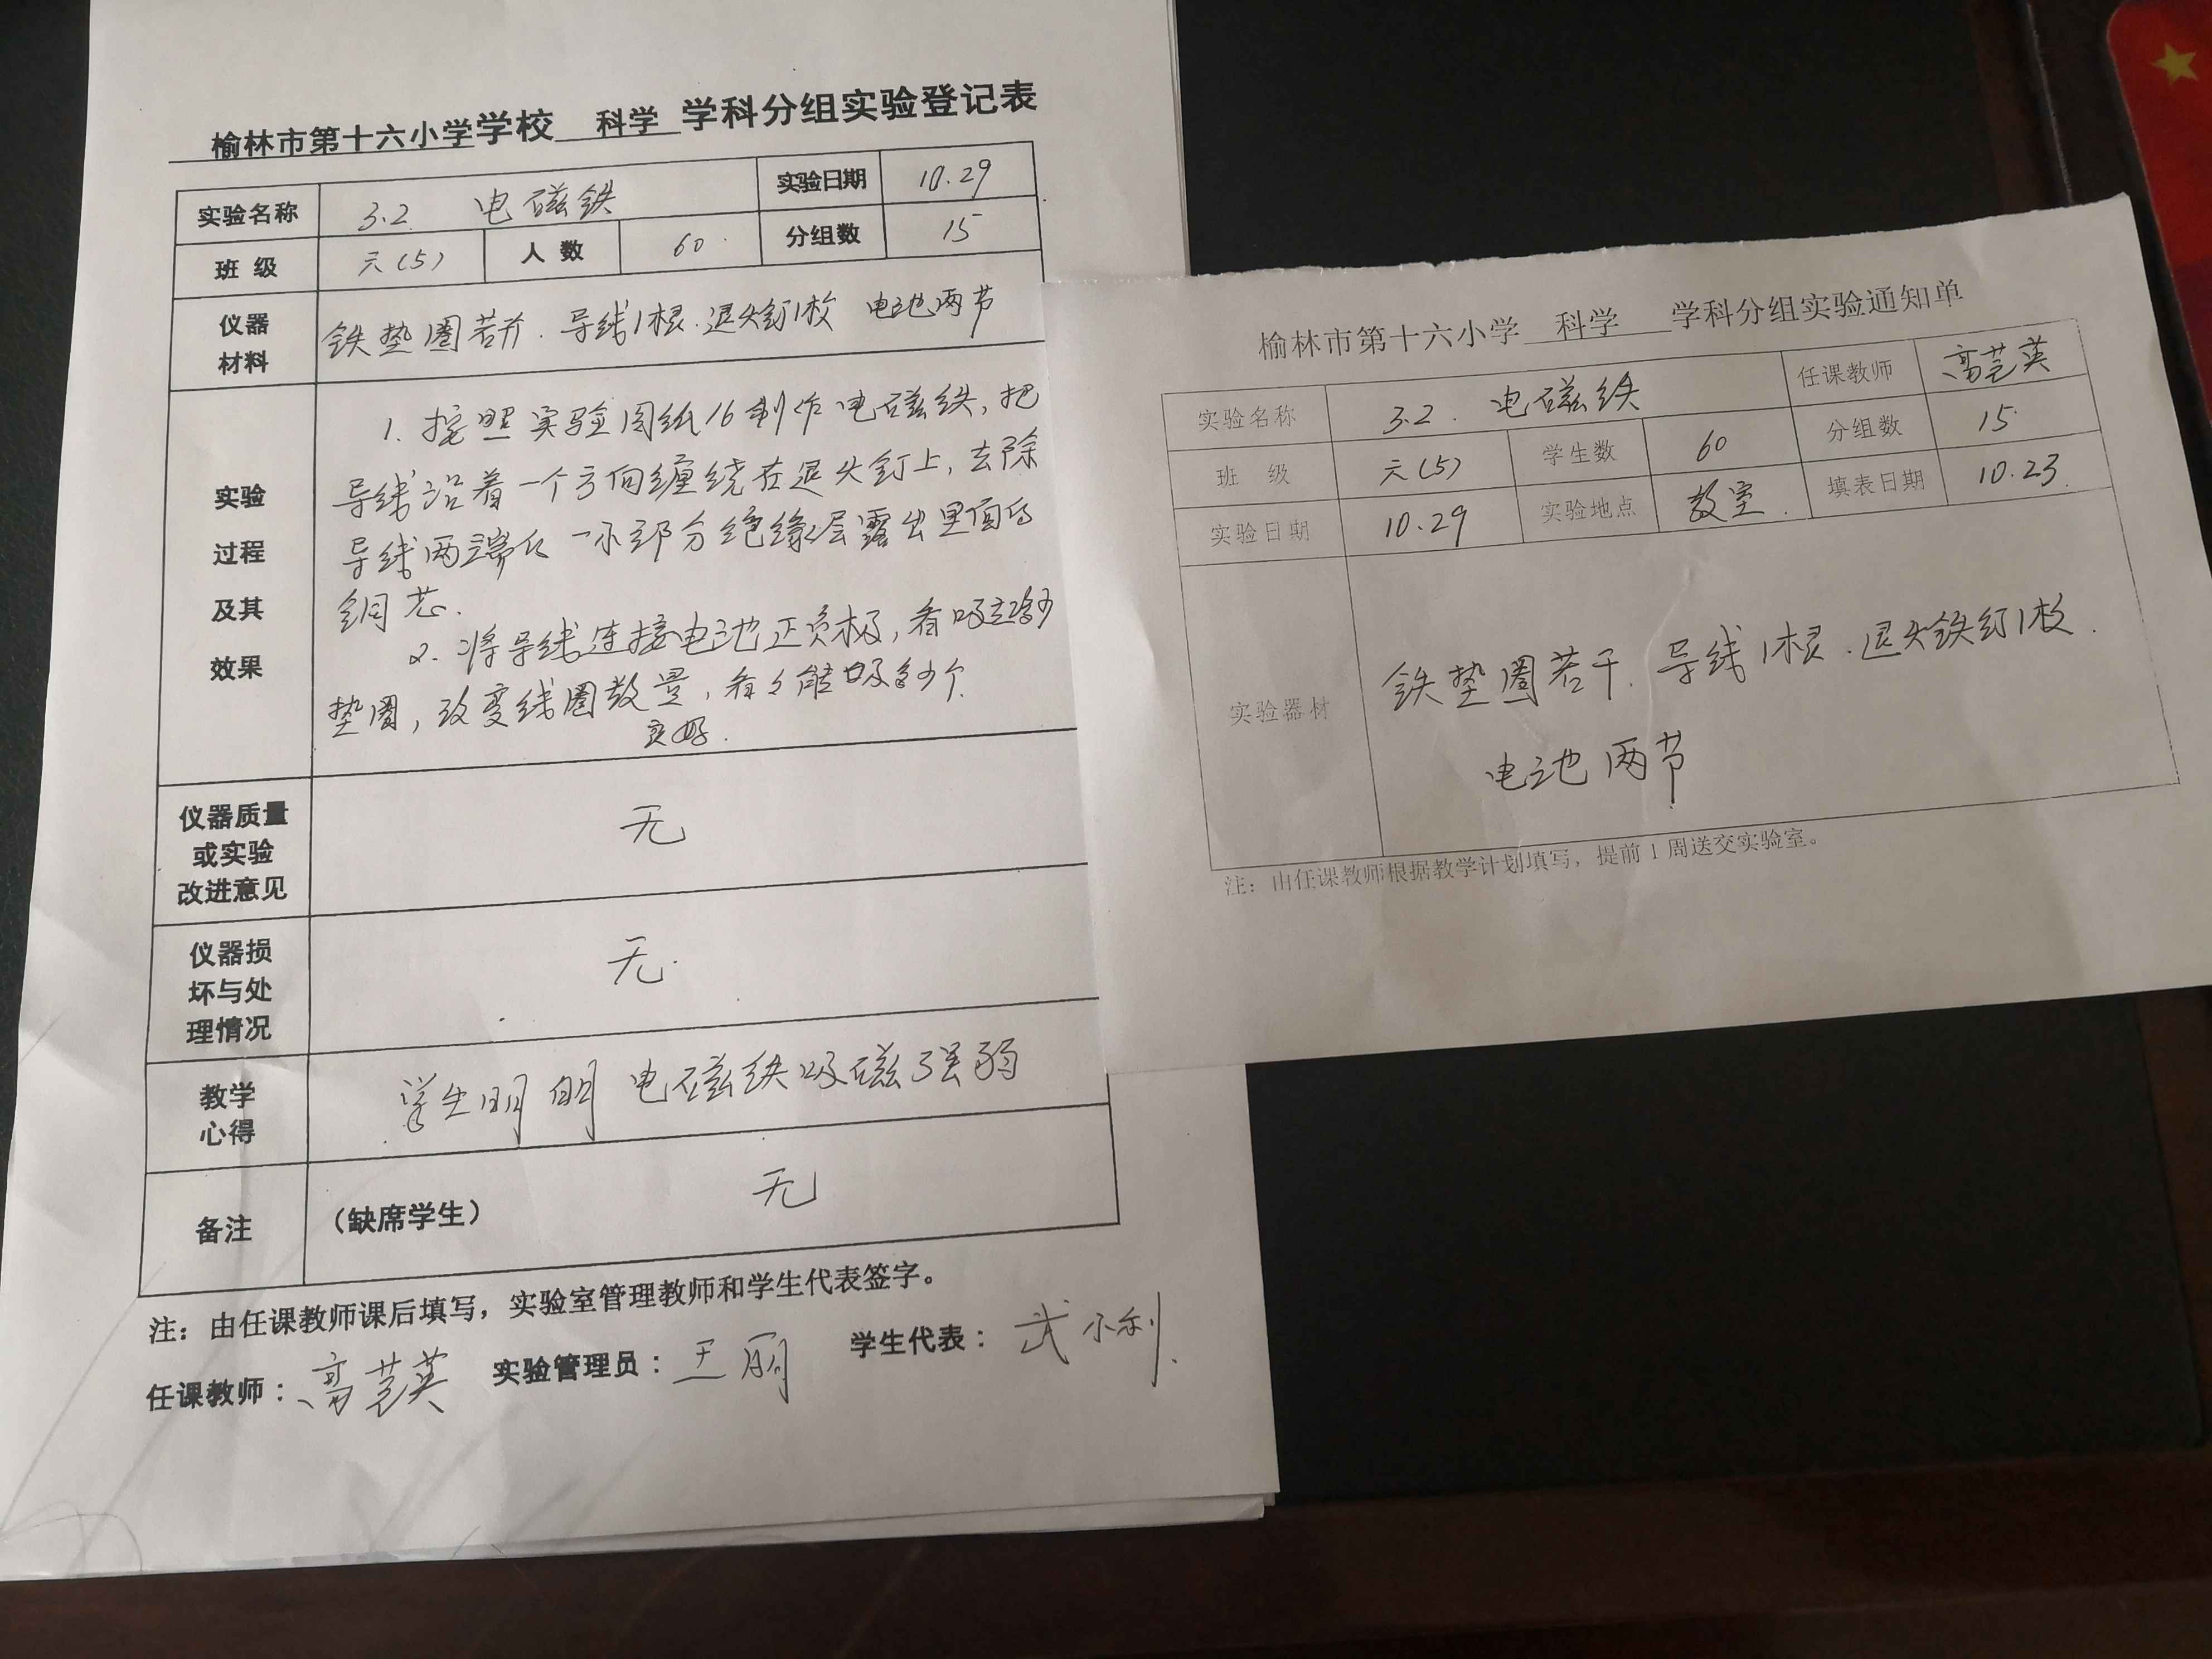 榆林市第十六小学学校 科学 学科分组实验登记表
实验名称 3.2 电磁铁 实验日期 10.29
班级 六(5) 人数 60 分组数 15
仪器材料 铁垫圈若干.导线1根.退火钉1枚 电池两节
实验过程及其效果
1.按照实验图纸16制作电磁铁,把
导线沿着一个方向缠绕在退火钉上,去除
导线两端的一小部分绝缘层露出里面的
铜芯.
2.将导线连接电池正负极,看吸起多少
垫圈,改变线圈数量,看看能吸多少个.
良好.
仪器质量或实验改进意见 无
仪器损坏与处理情况 无.
教学心得 学生明白 电磁铁吸磁强弱
备注 (缺席学生) 无
注:由任课教师课后填写,实验室管理教师和学生代表签字。
任课教师: 高芸英 实验管理员: 王丽 学生代表: 武小利
榆林市第十六小学 科学 学科分组实验通知单
实验名称 3.2. 电磁铁 任课教师 高芸英
班级 六(5) 学生数 60 分组数 15
实验日期 10.29 实验地点 教室. 填表日期 10.23.
实验器材
铁垫圈若干.导线1根.退火铁钉1枚.
电池两节
注:由任课教师根据教学计划填写,提前1周送交实验室。